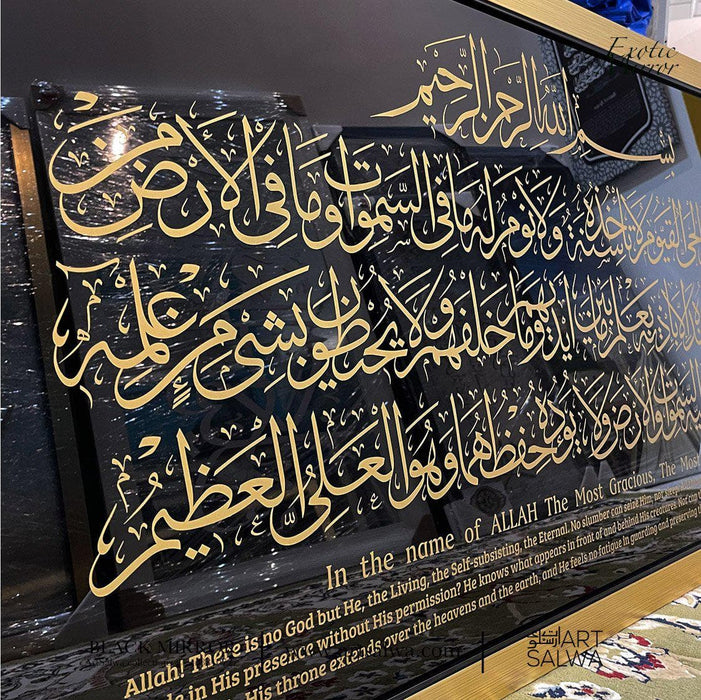 Exotic
بِسْمِ اللَّهِ الرَّحْمٰنِ الرَّحِيمِ
الحَيُّ القَيُّومُ لَا تَأْخُذُهُ سِنَةٌ وَلَا نَوْمٌ لَهُ مَا فِي السَّمٰوَاتِ وَمَا فِي الأَرْضِ مَنْ
إِلَّا بِإِذْنِهِ يَعْلَمُ مَا بَيْنَ أَيْدِيهِمْ وَمَا خَلْفَهُمْ وَلَا يُحِيطُونَ بِشَيْءٍ مِنْ عِلْمِهِ
السَّمٰوَاتِ وَالأَرْضَ وَلَا يَؤُدُهُ حِفْظُهُمَا وَهُوَ العَلِيُّ العَظِيمُ
In the name of ALLAH The Most Gracious, The Most
Allah! There is no God but He, the Living, the Self-subsisting, the Eternal. No slumber can seize Him, nor sleep
in His presence without His permission? He knows what appears in front of and behind His creatures. Nor can
His throne extends over the heavens and the earth, and He feels no fatigue in guarding and preserving
BLACK
ART
SALWA